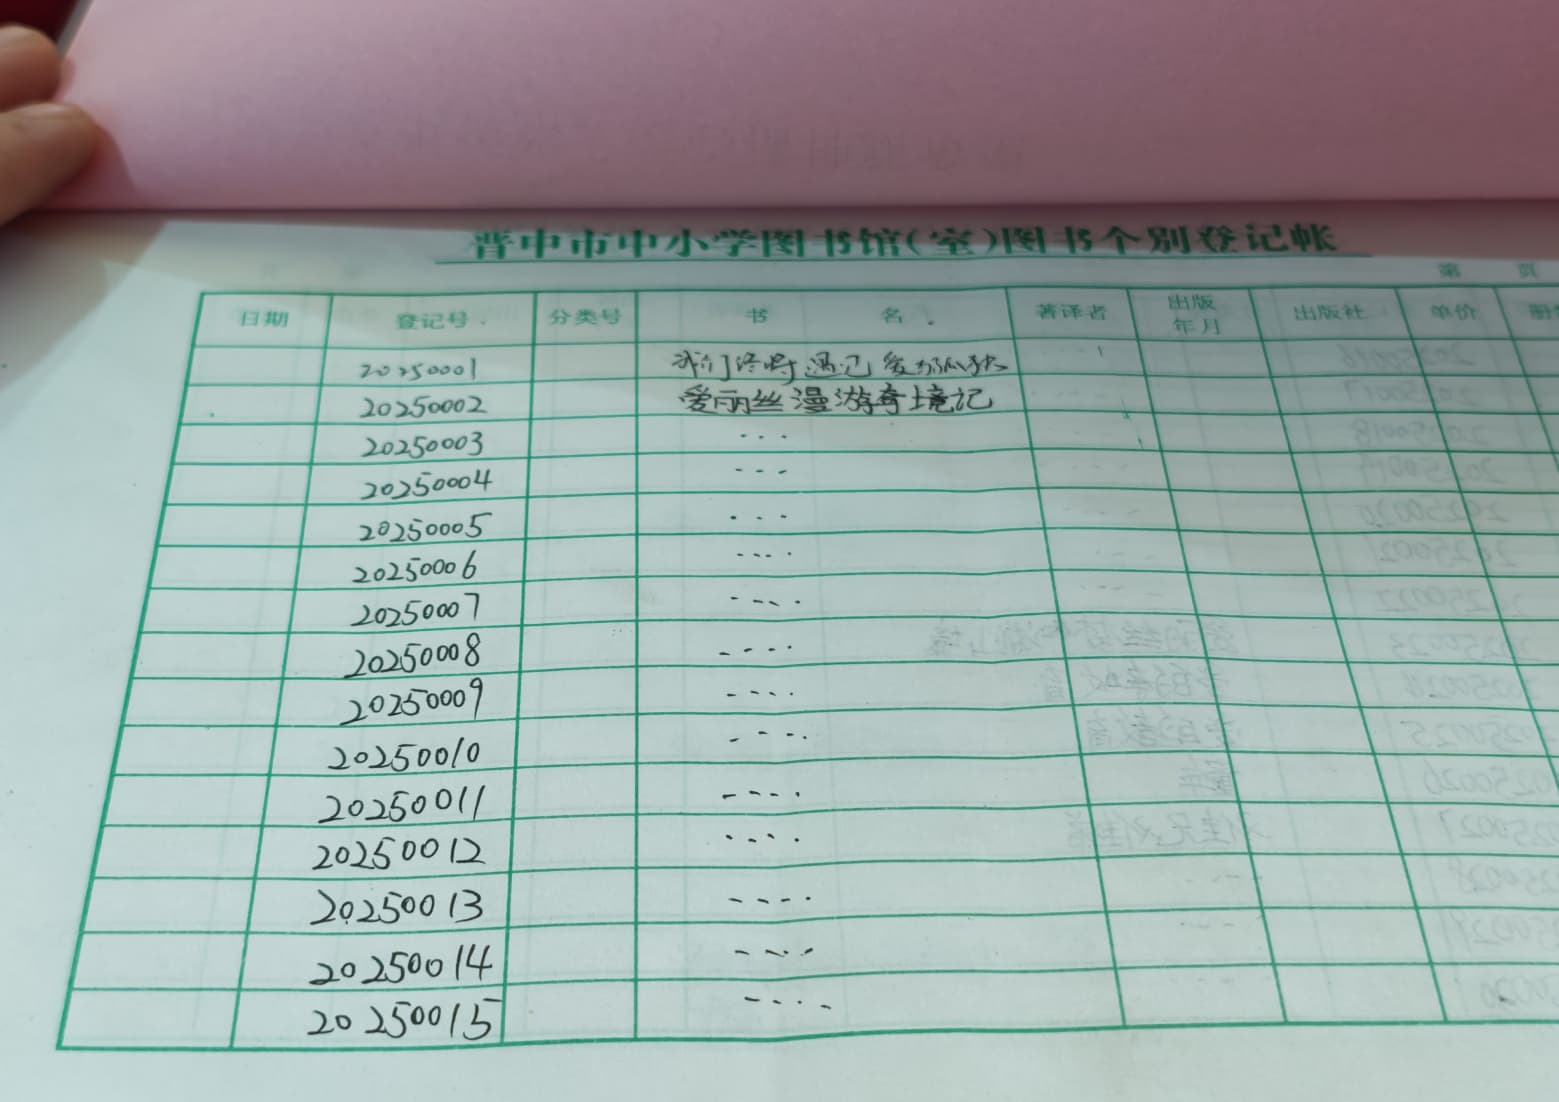 晋中市中小学图书馆(室)图书个别登记帐
第 页
日期 登记号 分类号 书 名 著译者 出版年月 出版社 单价 册
20250001 我们终将遇见爱与孤独
20250002 爱丽丝漫游奇境记
20250003 ...
20250004 ...
20250005 ...
20250006 ....
20250007 ....
20250008 ....
20250009 ....
20250010 ....
20250011 ....
20250012 ....
20250013 ....
20250014 ....
20250015 ....